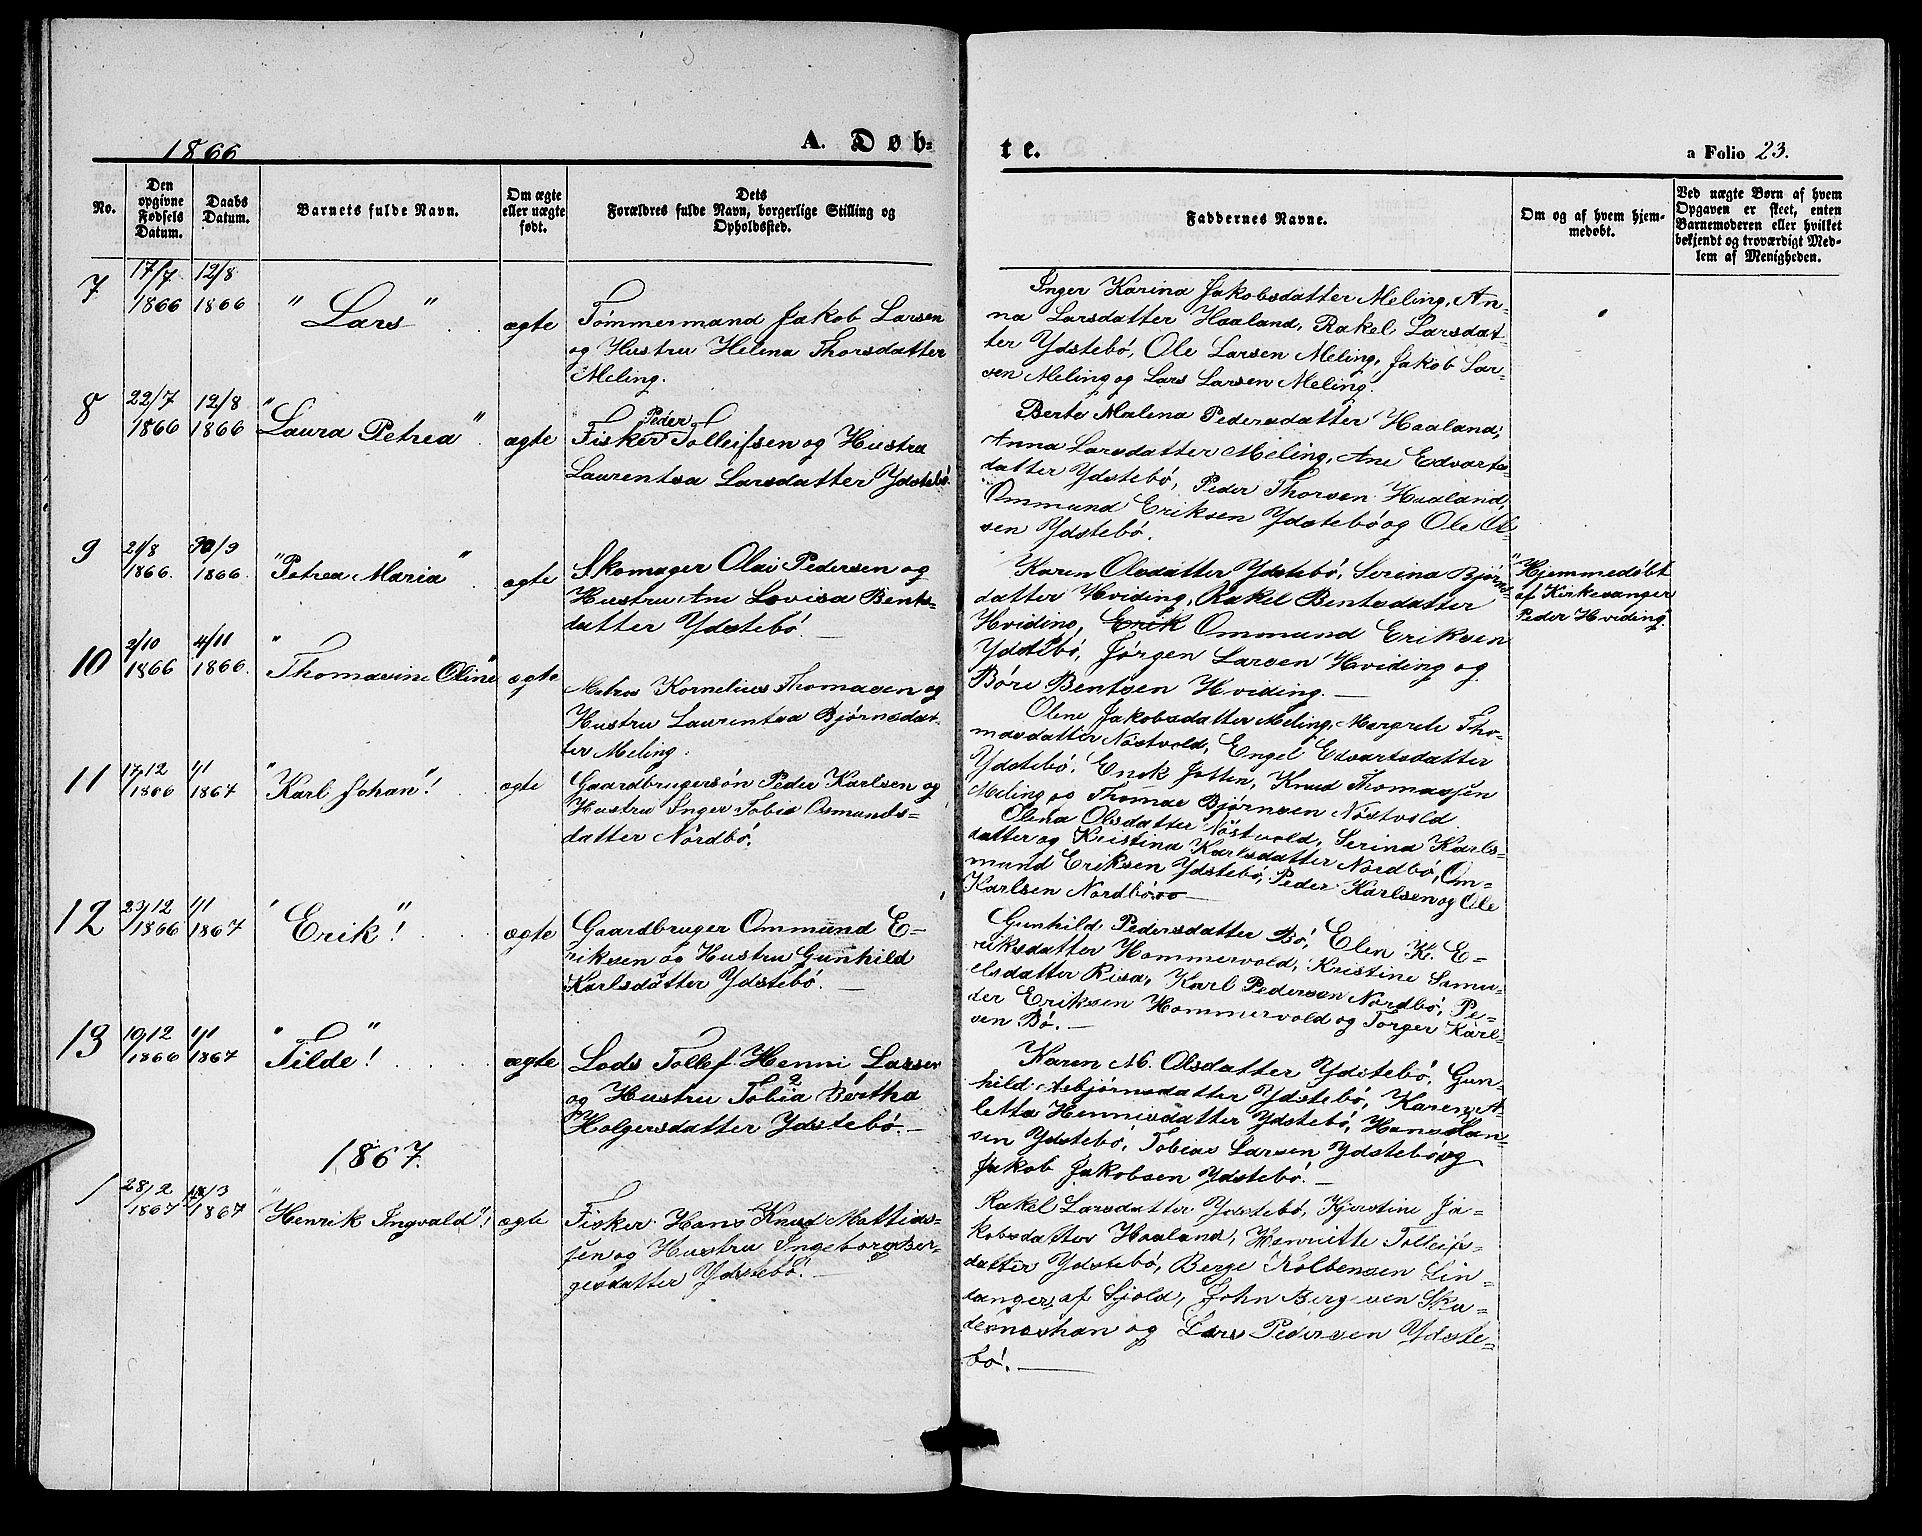 1866
A. Døb-
te.
a Folio 23.
No.
Den opgivne Fødsels Datum.
Daabs Datum.
Barnets fulde Navn.
Om ægte eller uægte født.
Dets Forældres fulde Navn, borgerlige Stilling og Opholdssted.
Faddernes Navne.
Om og af hvem hjemmedøbt.
Ved uægte Børn af hvem Opgaven er skeet, enten Barnemoderen eller hvilket bekjendt og troværdigt Medlem af Menigheden.
7
17/7 1866
12/8 1866
"Lars"
ægte
Tømmermand Jakob Larsen
og Hustru Helena Thorsdatter
Meling.
Inger Karina Jakobsdatter Meling, An-
na Larsdatter Haaland, Rakel Larsdat-
ter Ydstebö, Ole Larsen Meling, Jakob Lar-
sen Meling og Lars Larsen Meling.
8
22/7 1866
12/8 1866
"Laura Petrea"
ægte
Fisker Peder Tolleifsen og Hustru
Laurentsa Larsdatter Ydstebö
Berte Malena Pedersdatter Haaland,
Anna Larsdatter Meling, Ane Edvarts-
datter Ydstebö, Peder Thorsen Haaland,
Ommund Eriksen Ydstebö og Ole Ol-
sen Ydstebö.
9
21/8 1866.
30/9 1866
"Petrea Maria"
ægte
Skomager Olai Pedersen og
Hustru Ane Lovisa Bents-
datter Ydstebö. —
Karen Olsdatter Ydstebö, Serina Bjørns-
datter Hviding, Rakel Bentsdatter
Hviding, Erik Ommund Eriksen
Ydstebö, Jörgen Larsen Hviding og
Böre Bentsen Hviding. —
"Hjemmedöbt
af Kirkesanger
Peder Hviding"
10
2/10 1866
4/11 1866.
"Thomasine Oline"
ægte
Matros Kornelius Thomasen og
Hustru Laurentsa Bjørnsdat-
ter Meling.
Olene Jakobsdatter Meling, Margrete Tho-
masdatter Nöstvold, Engel Edvartsdatter
Ydstebö, Enok Jotten, Knud Thomassen
Meling og Thomas Bjørnsen Nöstvold
11
17/12 1866
1/1 1867
"Karl Johan"!
ægte
Gaardbrugersön Peder Karlsen og
Hustru Inger Tobia Osmunds-
datter Nordbö.
Olena Olsdatter Nöstvold, Serina Karls-
datter og Kristina Karlsdatter Nordbö, Om-
mund Eriksen Ydstebö, Peder Karlsen og Ole
Karlsen Nordbö.
12
23/12 1866
1/1 1867
"Erik"!
ægte
Gaardbruger Ommund E-
riksen og Hustru Gunhild
Karlsdatter Ydstebö. —
Gunhild Pedersdatter Bö, Elen K. E-
riksdatter Hommervold, Kristine Samu-
elsdatter Risa, Karl Pedersen Nordbö, Pe-
der Eriksen Hommervold og Torger Karl-
sen Bö. —
13
19/12 1866
1/1 1867
"Tilde"!
ægte
Lods Tollef Henni Larsen
og Hustru Tobia Bertha
Holgersdatter Ydstebö. —
Karen M. Olsdatter Ydstebö, Gun-
hild Asbjørnsdatter Ydstebö, Karen A-
letta Hennisdatter Ydstebö, Hans Han-
sen Ydstebö, Tobias Larsen Ydstebö og
Jakob Jakobsen Ydstebö. —
1867.
1
28/2 1867
18/3 1867
"Henrik Ingvald"!
ægte
Fisker Hans Knud Mattias-
sen og Hustru Ingeborg Ber-
gesdatter Ydstebö. —
Rakel Larsdatter Ydstebö, Kjerstine Ja-
kobsdatter Haaland, Henriette Tolleifs-
datter Ydstebö, Berge Kolbensen Lin-
danger af Sjold, John Bergesen Sku-
desneshavn og Lars Pedersen Ydste-
bö. —